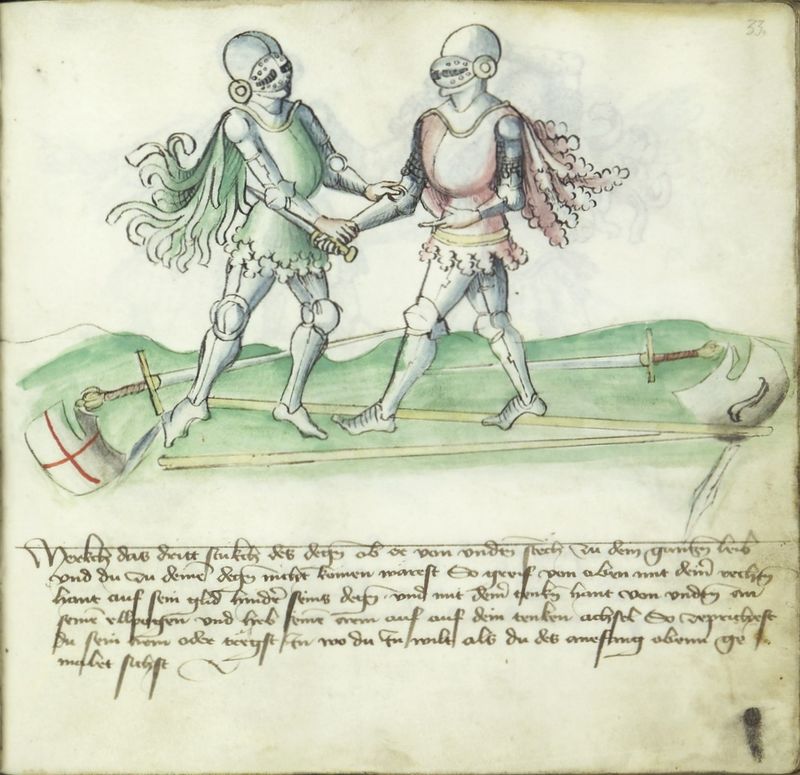 33.
Merckh das dritt stukch des degn ob er von vnden stech zu dem gantzn leib
vnd du zu deinē degn nicht komen wärest So greif von oben mit deiner rechtn
hant auf sein glid hinder seins degn vnd mit deiner tenkn hant von vnden an
seinē ellpogen vnd heb seinē arem auf auf dein tenken achsel So
du sein arem oder tregst In wo du In wilt als du des anefang obenn ge
malet sichst